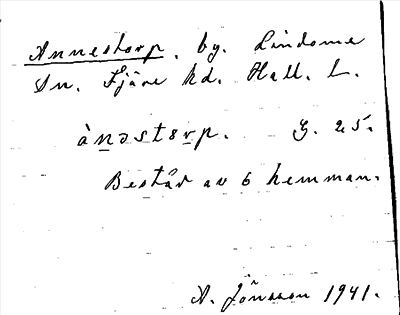 Annestorp. by. Lindome
Sn. Fjäre hd. Hall. L.
ànəstɞrp. G. 25.
Består av 6 hemman.
A. Jönsson 1941.